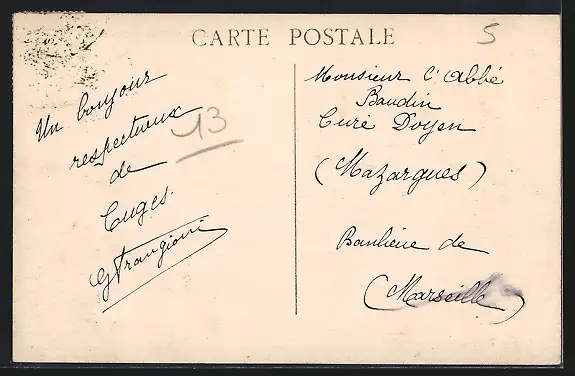 CARTE POSTALE
5
Un bonjour
respectueux
de
Cuges.
13
Monsieur l'Abbé
Baudin
Curé Doyen
(Mazargues)
Banlieue de
(Marseille)